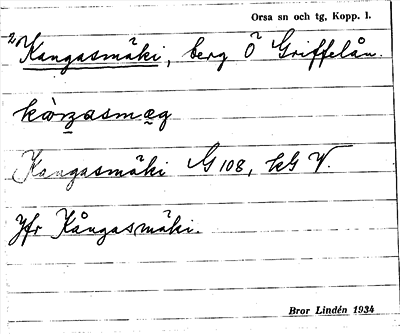 Orsa sn och tg, Kopp. l.
2 Kangasmäki, berg Ö Griffelån.
Kangasmäki G 108, kG V.
Jfr Kångasmäki.
Bror Lindén 1934